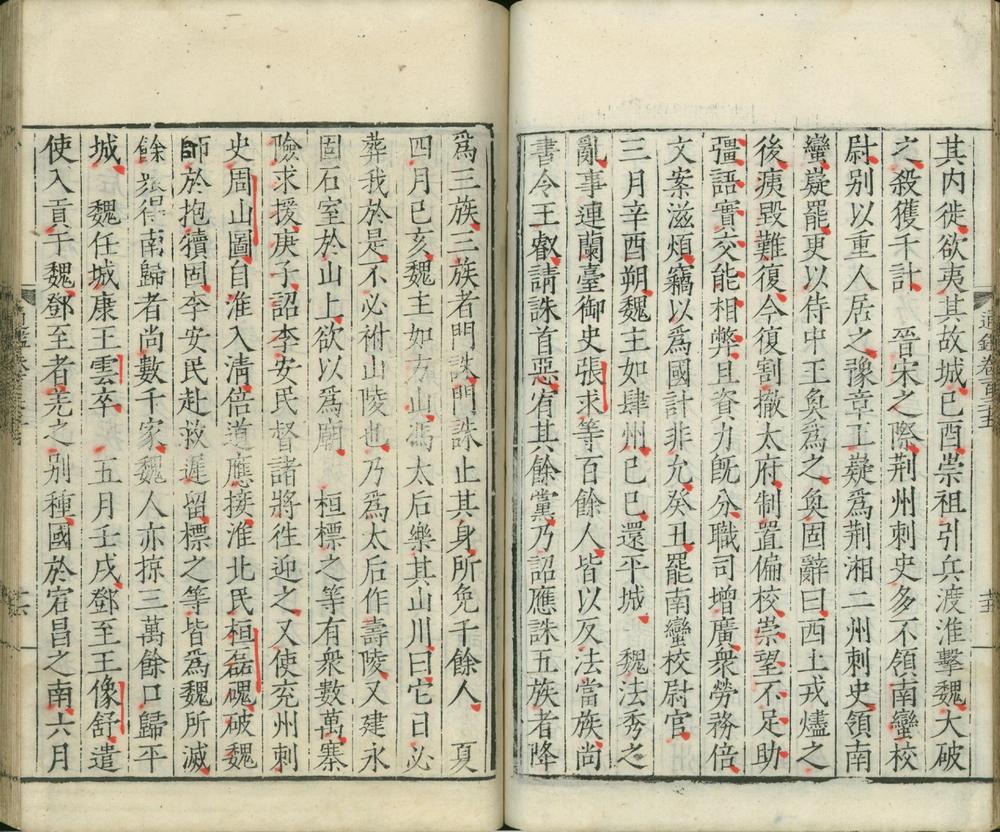 其内徙欲夷其故城己酉崇祖引兵渡淮擊魏大破
之殺獲千計　晉宋之際荆州刺史多不領南蠻校
尉别以重人居之豫章王嶷爲荆湘二州刺史領南
蠻嶷罷更以侍中王奐爲之奐固辭曰西土戎燼之
後痍毁難復今復割撤太府制置偏校崇望不足助
彊語實交能相弊且資力旣分職司增廣衆勞務倍
文案滋煩竊以爲國計非允癸丑罷南蠻校尉官
三月辛酉朔魏主如肆州己巳還平城　魏法秀之
亂事連蘭臺御史張求等百餘人皆以反法當族尚
書令王叡請誅首惡宥其餘黨乃詔應誅五族者降
通鑑卷百三十五
爲三族三族者門誅門誅止其身所免千餘人　夏
四月己亥魏主如方山馮太后樂其山川曰它日必
葬我於是不必祔山陵也乃爲太后作壽陵又建永
固石室於山上欲以爲廟　桓標之等有衆數萬寨
險求援庚子詔李安民督諸將往迎之又使兖州刺
史周山圖自淮入清倍道應接淮北民桓磊磈破魏
師於抱犢固李安民赴救遲留標之等皆爲魏所滅
餘衆得南歸者尚數千家魏人亦掠三萬餘口歸平
城　魏任城康王雲卒　五月壬戌鄧至王像舒遣
使入貢于魏鄧至者羌之别種國於宕昌之南六月